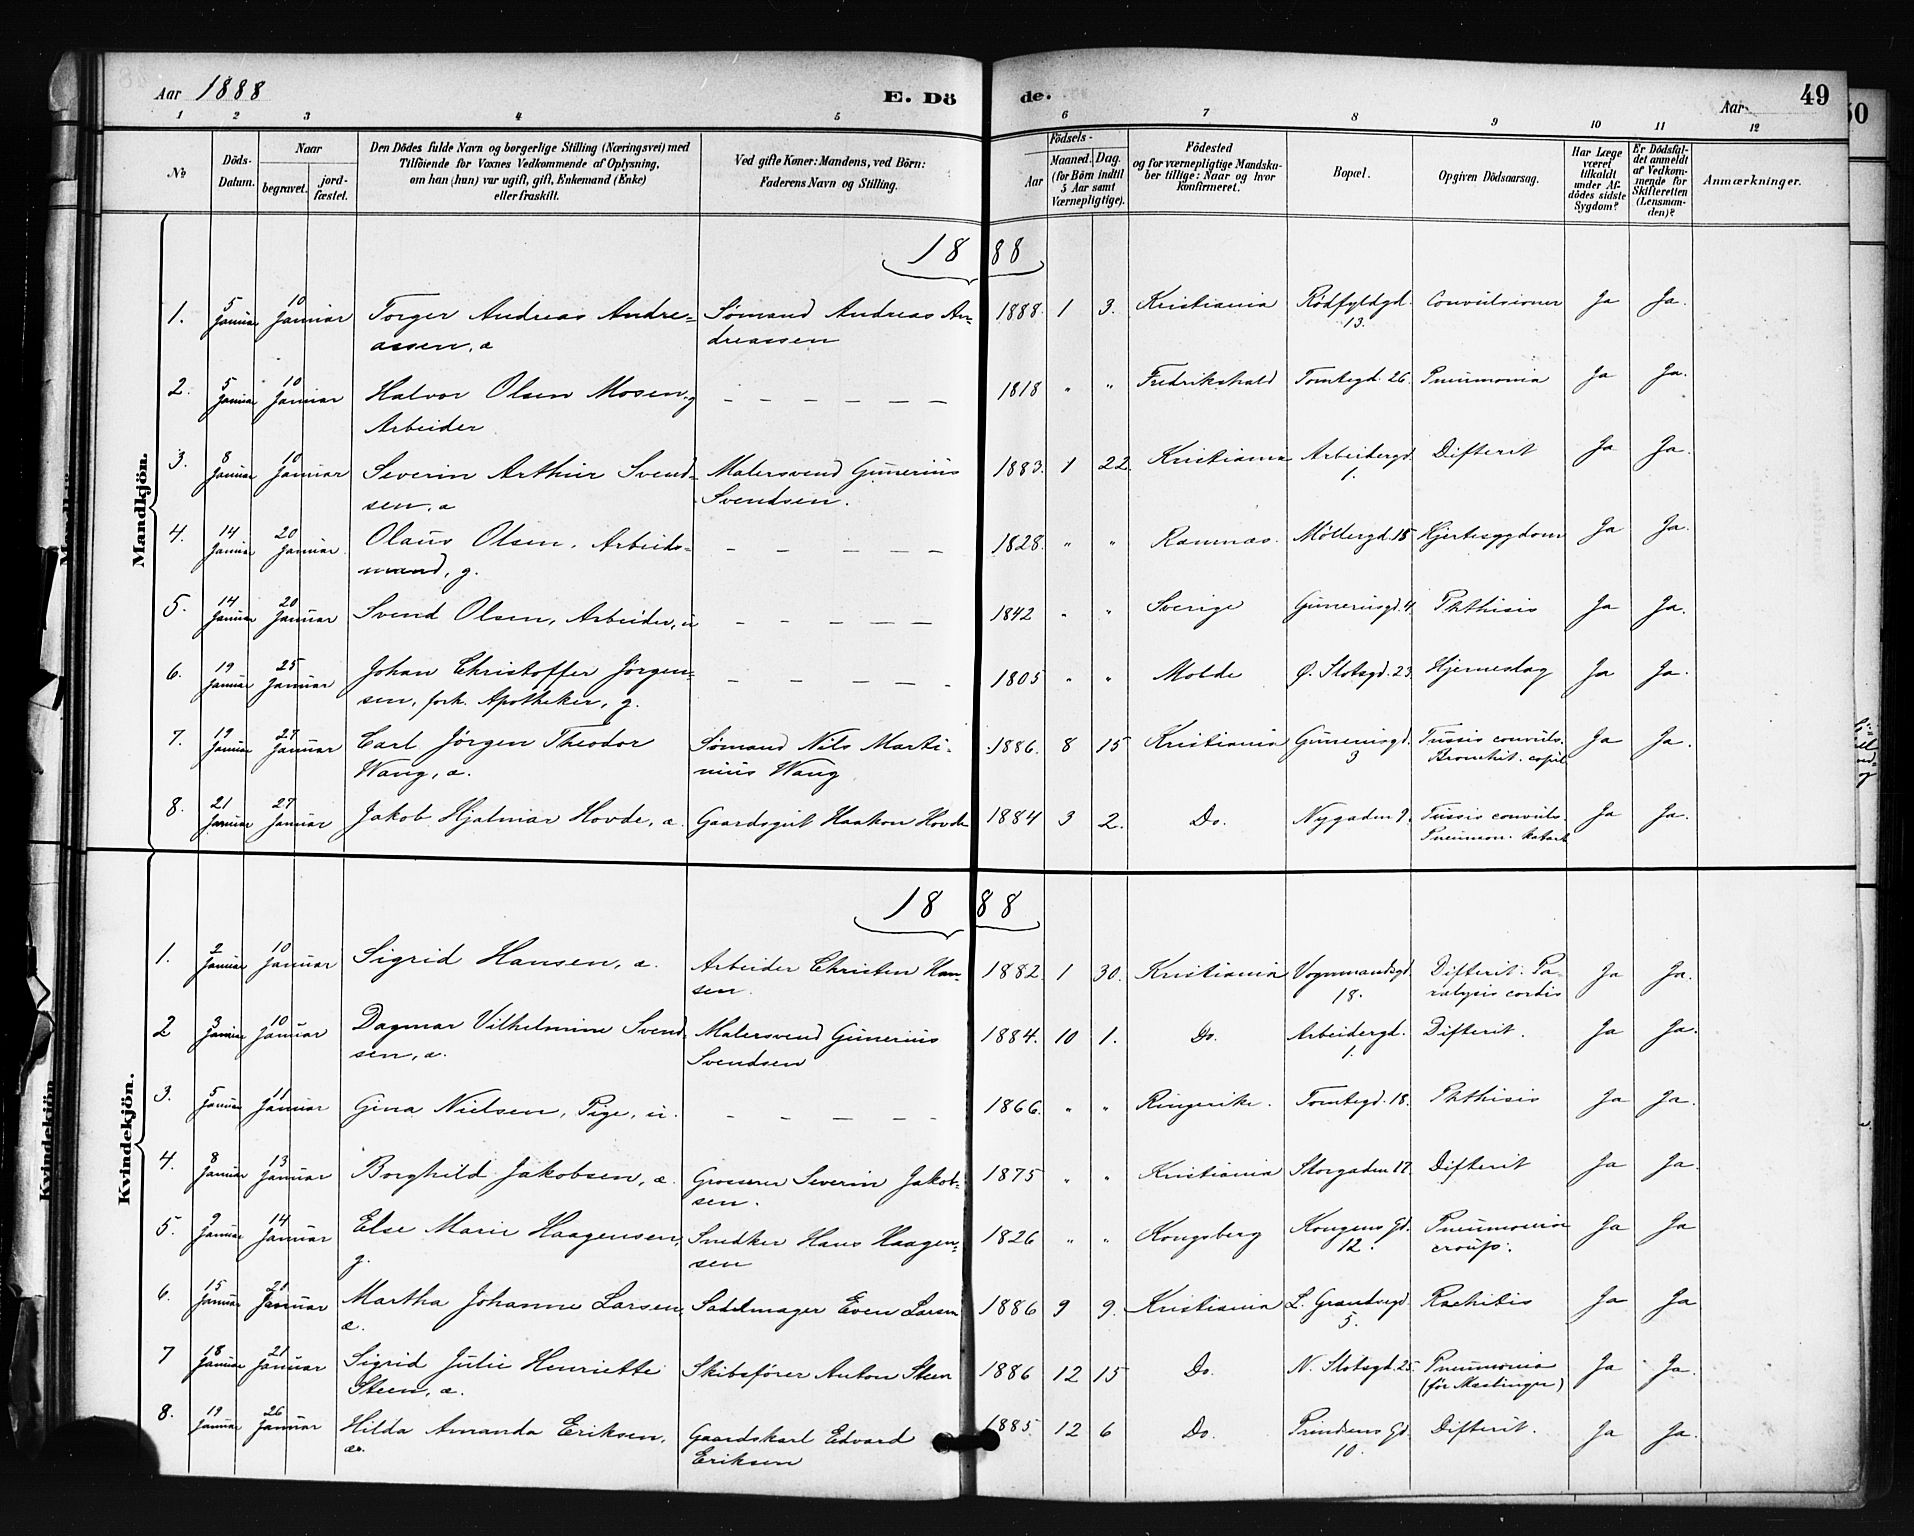 Aar 1888
E. Dö de.
Aar 49
1 2 3 4 5 6 7 8 9 10 11 12
№
Döds-Datum.
Naar
begravet.
jord-fæstet.
Den Dödes fulde Navn og borgerlige Stilling (Næringsvei) med
Tilföiende for Voxnes Vedkommende af Oplysning,
om han (hun) var ugift, gift, Enkemand (Enke)
eller fraskilt.
Ved gifte Koner: Mandens, ved Börn:
Faderens Navn og Stilling.
Födsels-
Aar
Maaned. Dag.
(for Börn indtil
5 Aar samt
Værnepligtige).
Födested
og for værnepligtige Mandska-
ber tillige: Naar og hvor
konfirmeret.
Bopæl.
Opgiven Dödsaarsag.
Har Læge
været
tilkaldt
under Af-
dödes sidste
Sygdom?
Er Dödsfal-
det anmeldt
af Vedkom-
mende for
Skifteretten
(Lensman-
den)?
Anmærkninger.
Mandkjön.
1888
1. 5 Januar 10 Januar Torger Andreas Andre- Sømand Andreas An- 1888. 1 3. Kristiania Rødfyldgd. Convulsioner Ja Ja.
assen, æ dreassen 13.
2. 5 Januar 10 Januar Halvor Olsen Mosen, g — — — — — — 1818 " " Fredrikshald Tomtegd. 26. Pneumonia Ja Ja.
Arbeider
3. 8 Januar 10 Januar Severin Arthur Svend- Malersvend Gunerius 1883. 1 22. Kristiania Arbeidergd. Difterit Ja Ja.
sen, æ Svendsen. 1.
4. 14 Januar 20 Januar Olaus Olsen, Arbeids- — — — — — 1828. " " Ramnæs. Møllergd. 15 Hjertesygdom Ja Ja.
mand, g.
5. 14 Januar 20 Januar Svend Olsen, Arbeider, u — — — — — 1842 " " Sverige Gunerusgd. 4. Phthisis Ja Ja.
6. 19 Januar 25 Januar Johan Christoffer Jörgen- — — — — — 1805 " " Molde Ø. Slotsgd. 23. Hjerneslag Ja Ja.
sen, forh. Apotheker, g.
7. 19 Januar 27 Januar Carl Jörgen Theodor Sømand Nils Marti- 1886. 8 15 Kristiania Gunerusgd. Tussis convuls. Ja Ja.
Wang, æ. nius Wang 3 Bronchit. capil
8. 21 Januar 27 Januar Jakob Hjalmar Hovde, æ. Gaardsgut Haakon Hovde 1884 3 2. Do. Nygaden 9. Tussis convuls. Ja Ja.
Pneumon. katarh
Kvindekjön.
1888
1. 2 Januar 10 Januar Sigrid Hansen, æ. Arbeider Christen Han- 1882. 1 30. Kristiania Vognmandsgd. Difterit. Pa- Ja Ja.
sen. 18. ralysis cordis
2 3 Januar 10 Januar Dagmar Vilhelmine Svend- Malersvend Gunerius 1884. 10 1. Do. Arbeidergd. Difterit. Ja Ja.
sen, æ. Svendsen 1.
3. 5 Januar 11 Januar Gina Nielsen, Pige, u. — — — — 1866. " " Ringerike. Tomtegd. 18. Phthisis Ja Ja.
4. 8 Januar 13 Januar Borghild Jakobsen, æ. Grosserer Severin Jakob- 1875 " " Kristiania Storgaden 17. Difterit Ja Ja.
sen.
5. 9 Januar 14 Januar Else Marie Haagensen, Snedker Hans Haagen- 1826 " " Kongsberg Kongens Gd. Pneumonia Ja Ja
g. sen 12. croup.
6. 15 Januar 21 Januar Martha Johanne Larsen, Sadelmager Even Larsen 1886 9 9. Kristiania L. Grændsegd. Rachitis Ja Ja
æ. 5.
7 18 Januar 21 Januar Sigrid Julie Henriette Skibsfører Anton Steen 1886 12 15 Do. N. Slotsgd. 25. Pneumonia Ja Ja.
Steen, æ. (før Mæslinger)
8. 19 Januar 26 Januar Hilda Amanda Eriksen, Gaardskarl Edvard 1885. 12 6 Do. Prindsens Gd. Difterit. Ja Ja.
æ. Eriksen 10.